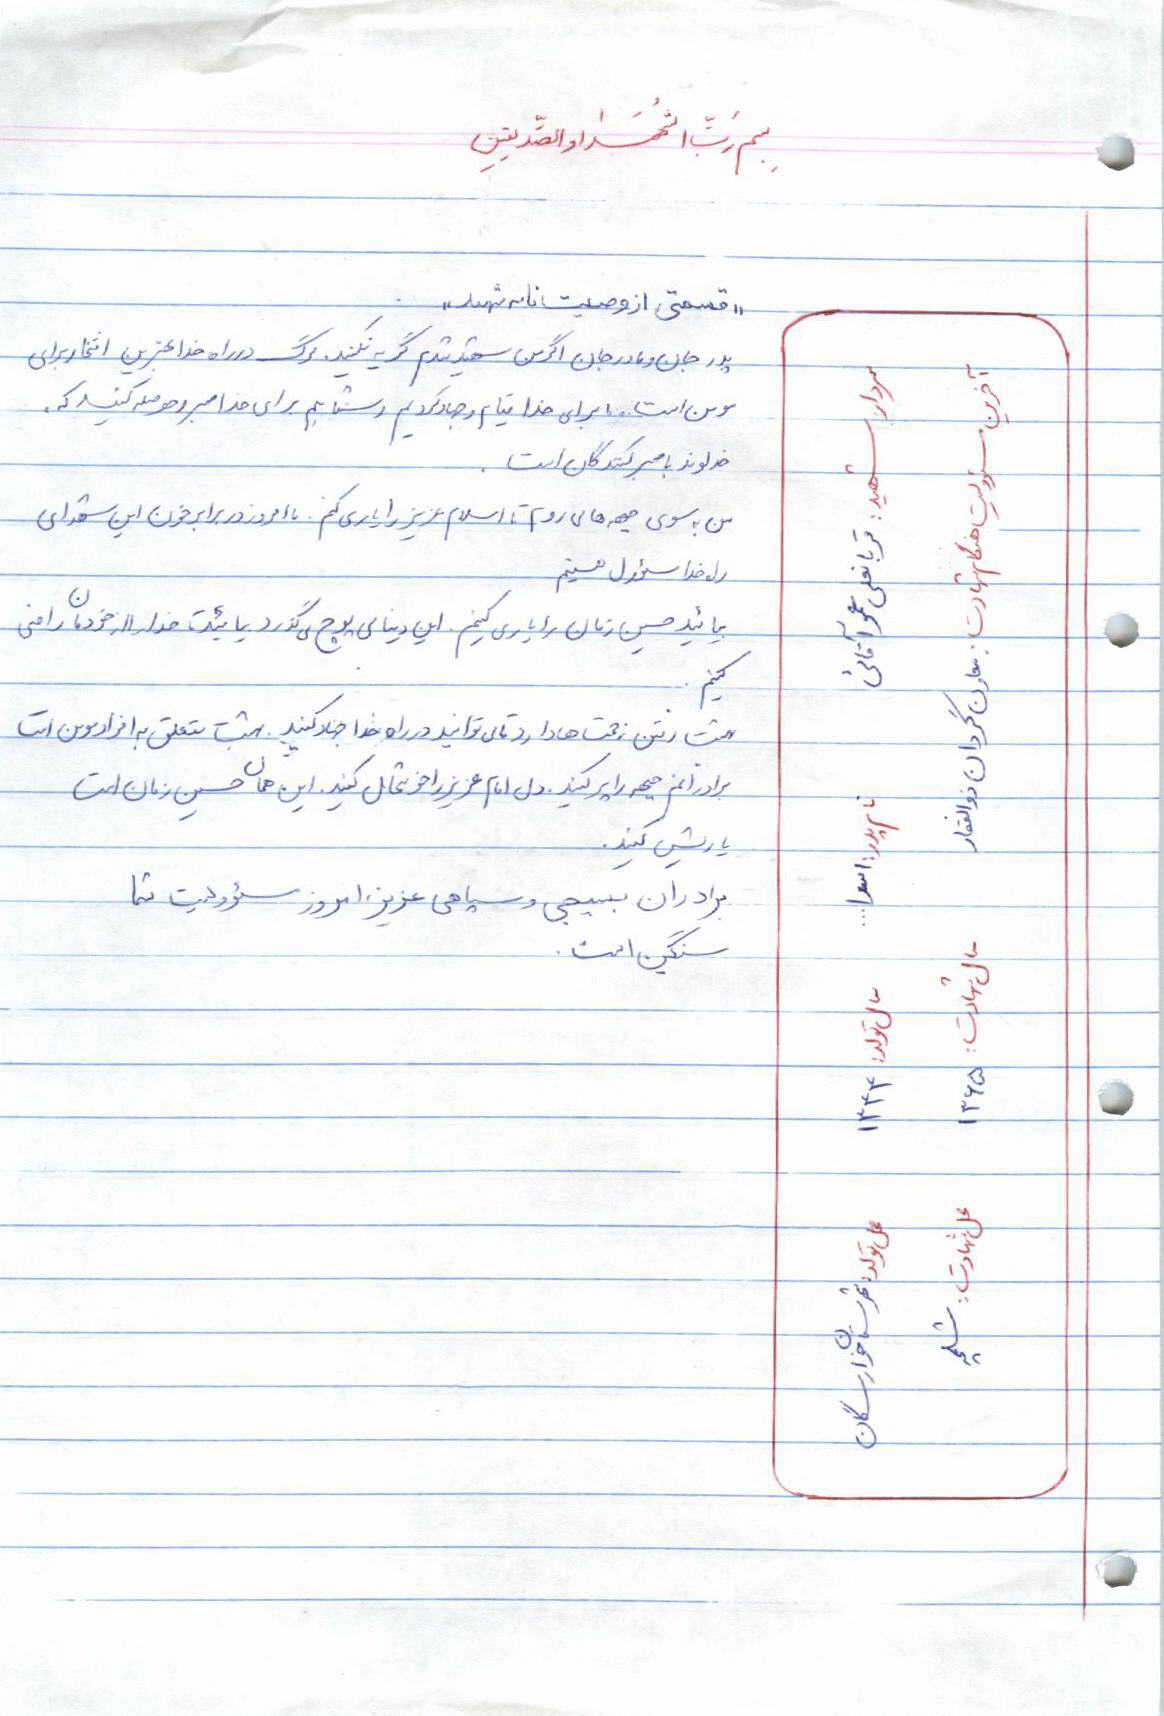 بِسمِ رَبِّ الشُّهَداءِ والصِّدیقینِ
«قسمتی از وصیت نامه شهید»
پدر جان و مادر جان اگر من شهید شدم گریه نکنید. مرگ در راه خدا بهترین افتخار برای
مومن است.. ما برای خدا قیام و جهاد کردیم و شما هم برای خدا صبر و حوصله کنید که
خداوند با صبر کنندگان است.
من به سوی جبهه ها می روم تا اسلام عزیز را یاری کنم. ما امروز در برابر خون این شهدای
راه خدا مسؤول هستیم
بیائید حسین زمان را یاری کنیم. این دنیای پوچ می گذرد بیائید تا خدا را از خودمان راضی
کنیم.
بهشت رفتن زحمت ها دارد تا می توانید در راه خدا جهاد کنید. بهشت متعلق به افراد مومن است
برادرانم جبهه را پر کنید. دل امام عزیز را خوشحال کنید. این همان حسین زمان است
یاریش کنید.
برادران بسیجی و سپاهی عزیز، امروز مسؤولیت شما
سنگین است.
سردار شهید: قربانعلی عموآقائی نام پدر: اسدا... سال تولد: ۱۳۴۳ محل تولد: شهرستان خوراسگان
آخرین مسئولیت هنگام شهادت: معاون گردان ذوالفقار سال شهادت: ۱۳۶۵ محل شهادت: شلمچه